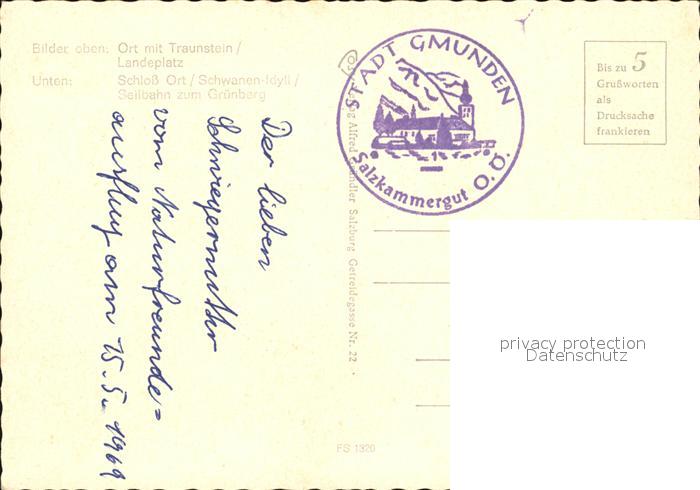 Bilder oben: Ort mit Traunstein /
Landeplatz
Unten: Schloß Ort / Schwanen-Idyll /
Seilbahn zum Grünberg
Der lieben
Schwiegermutter
vom Naturfreunde=
ausflug am 15.5. 1969
STADT GMUNDEN
Salzkammergut O.Ö.
Alfred Gründler Salzburg Getreidegasse Nr. 22
Bis zu 5
Grußworten
als
Drucksache
frankieren
privacy protection
Datenschutz
FS 1320